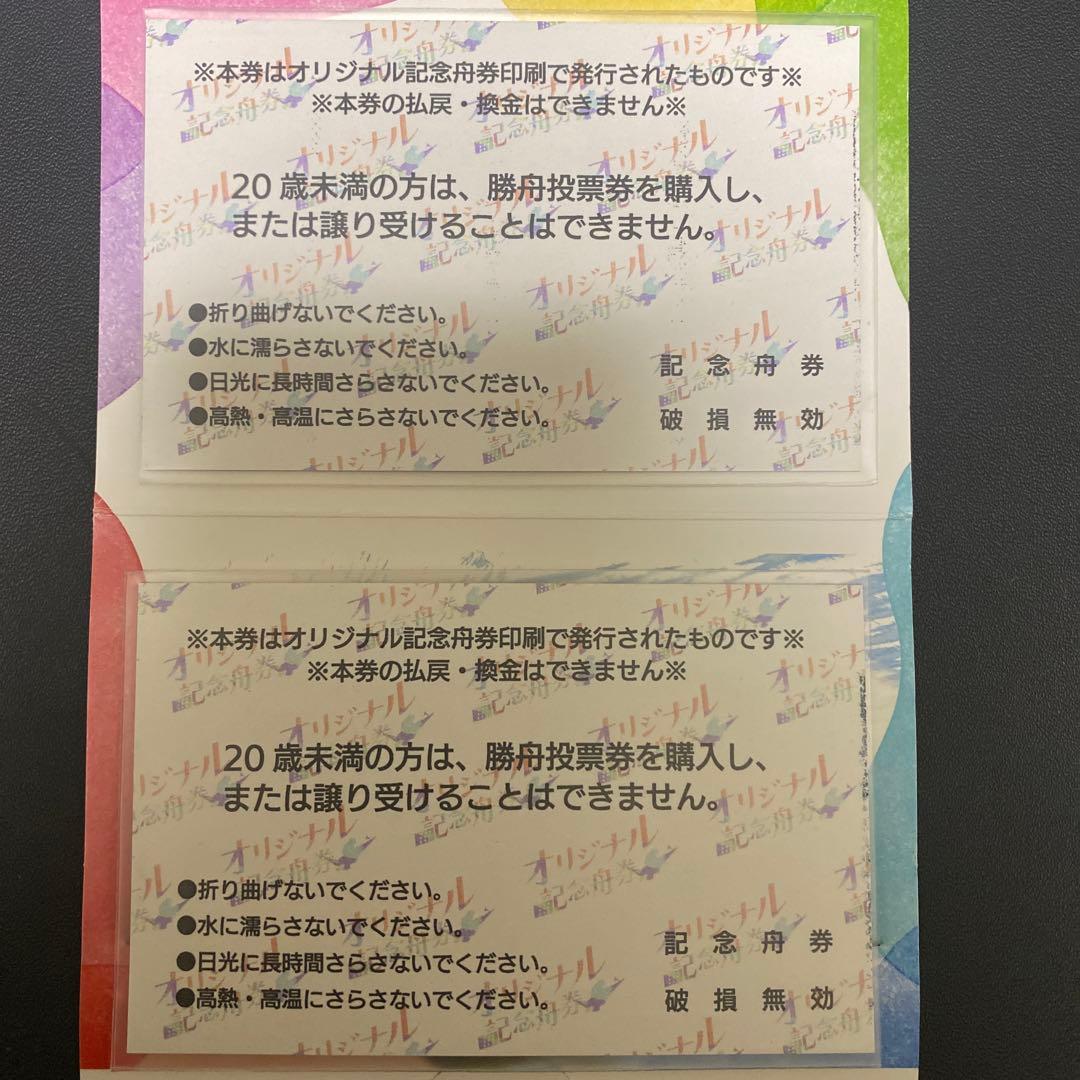 ※本券はオリジナル記念舟券印刷で発行されたものです※
※本券の払戻・換金はできません※
20歳未満の方は、勝舟投票券を購入し、
または譲り受けることはできません。
●折り曲げないでください。
●水に濡らさないでください。
●日光に長時間さらさないでください。
●高熱・高温にさらさないでください。
記念舟券
破損無効
オリジナル
記念舟券
※本券はオリジナル記念舟券印刷で発行されたものです※
※本券の払戻・換金はできません※
20歳未満の方は、勝舟投票券を購入し、
または譲り受けることはできません。
●折り曲げないでください。
●水に濡らさないでください。
●日光に長時間さらさないでください。
●高熱・高温にさらさないでください。
記念舟券
破損無効
オリジナル
記念舟券